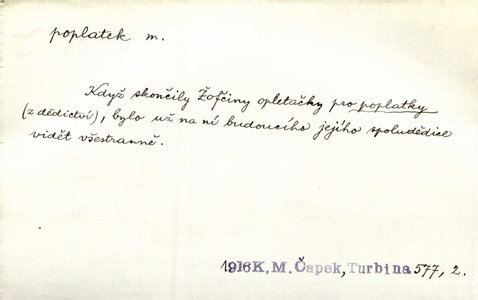 poplatek m.
Když skončily Žofčiny opletačky pro poplatky
(z dědictví), bylo už na ní budoucího jejího spoludědice
vidět všestranně.
1916 K. M. Čapek, Turbina 577, 2.